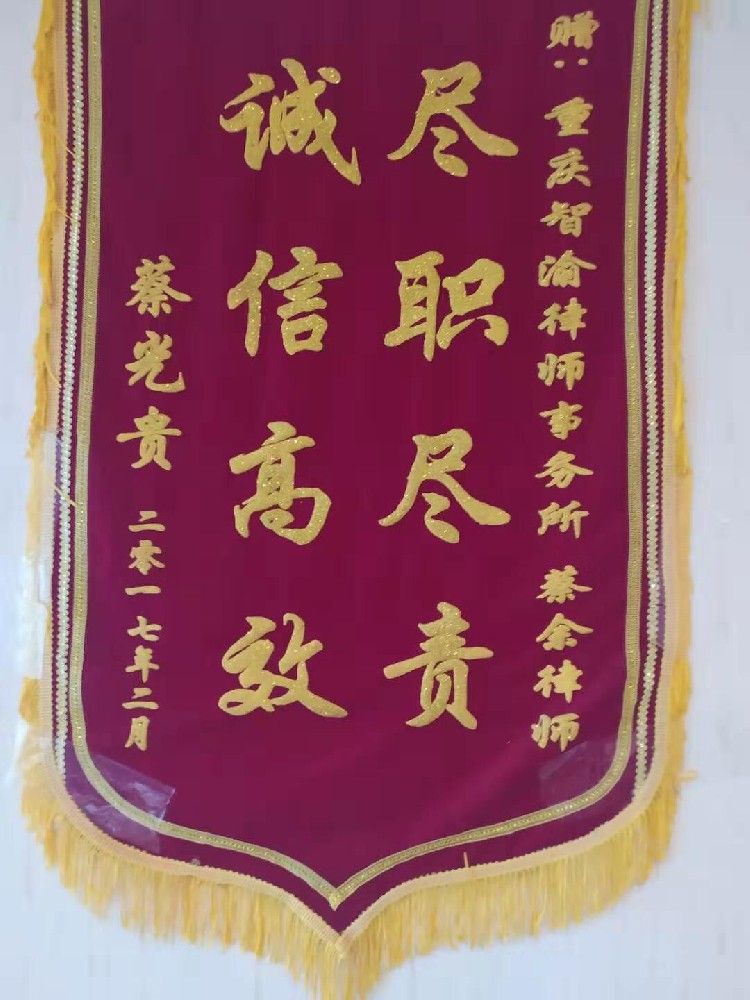 赠：重庆智渝律师事务所 蔡余律师
尽职尽责
诚信高效
蔡光贵 二零一七年二月